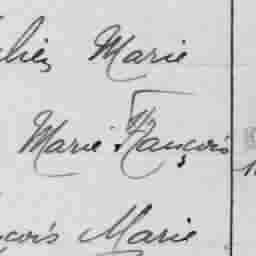 Marie
Marie François
çois Marie